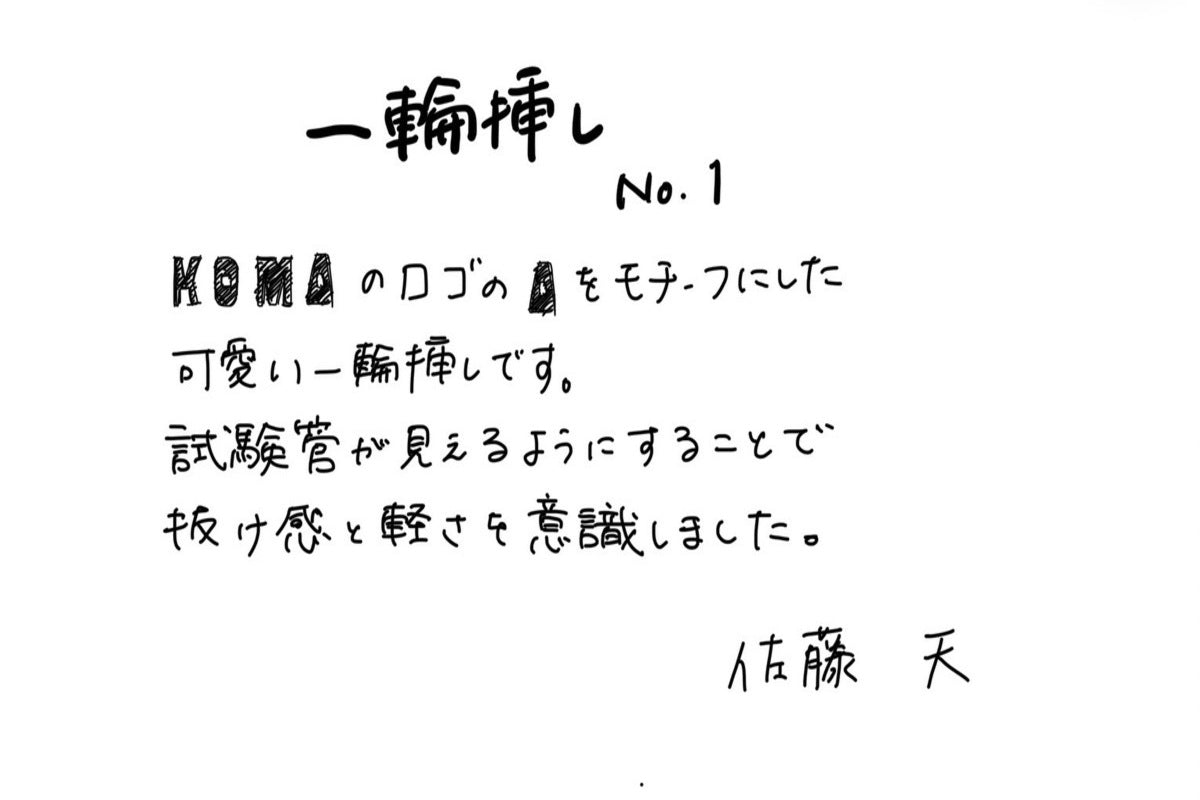 一輪挿し
No. 1
KOMAのロゴのAをモチーフにした
可愛い一輪挿しです。
試験管が見えるようにすることで
抜け感と軽さを意識しました。
佐藤 天